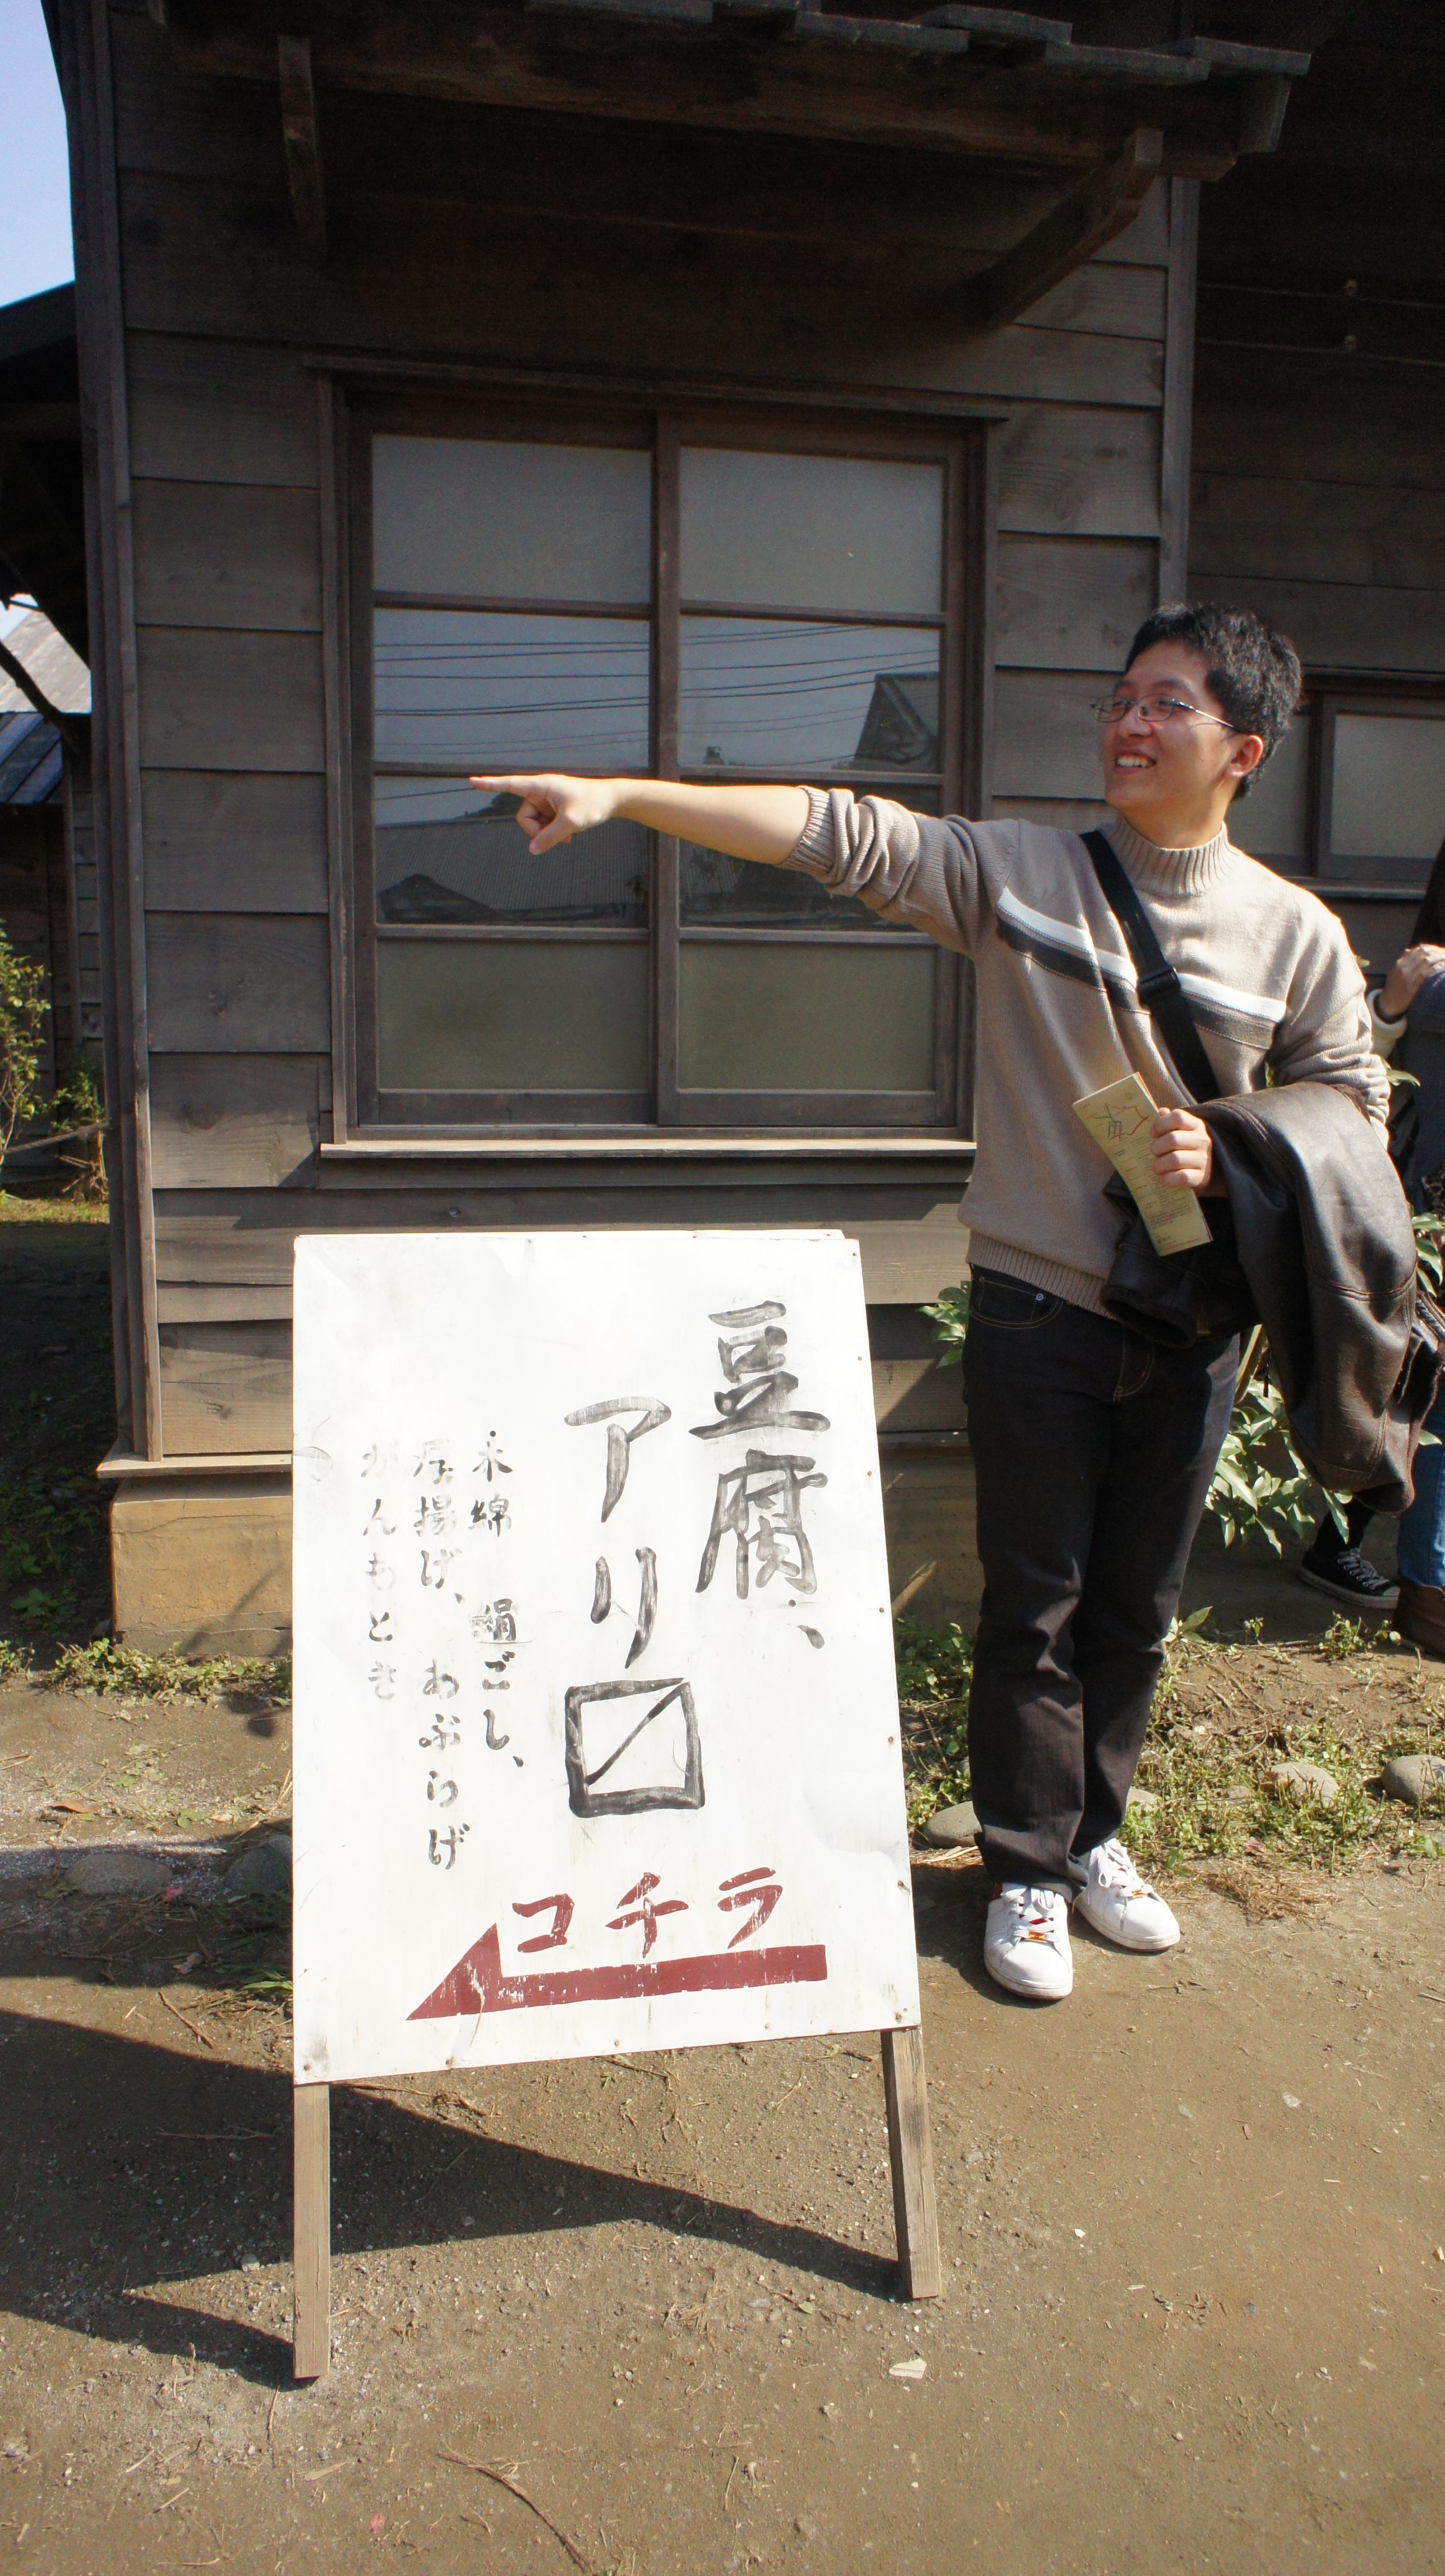 豆腐、
アリ〼
木綿 絹ごし、
厚揚げ、あぶらげ
がんもとき
コチラ